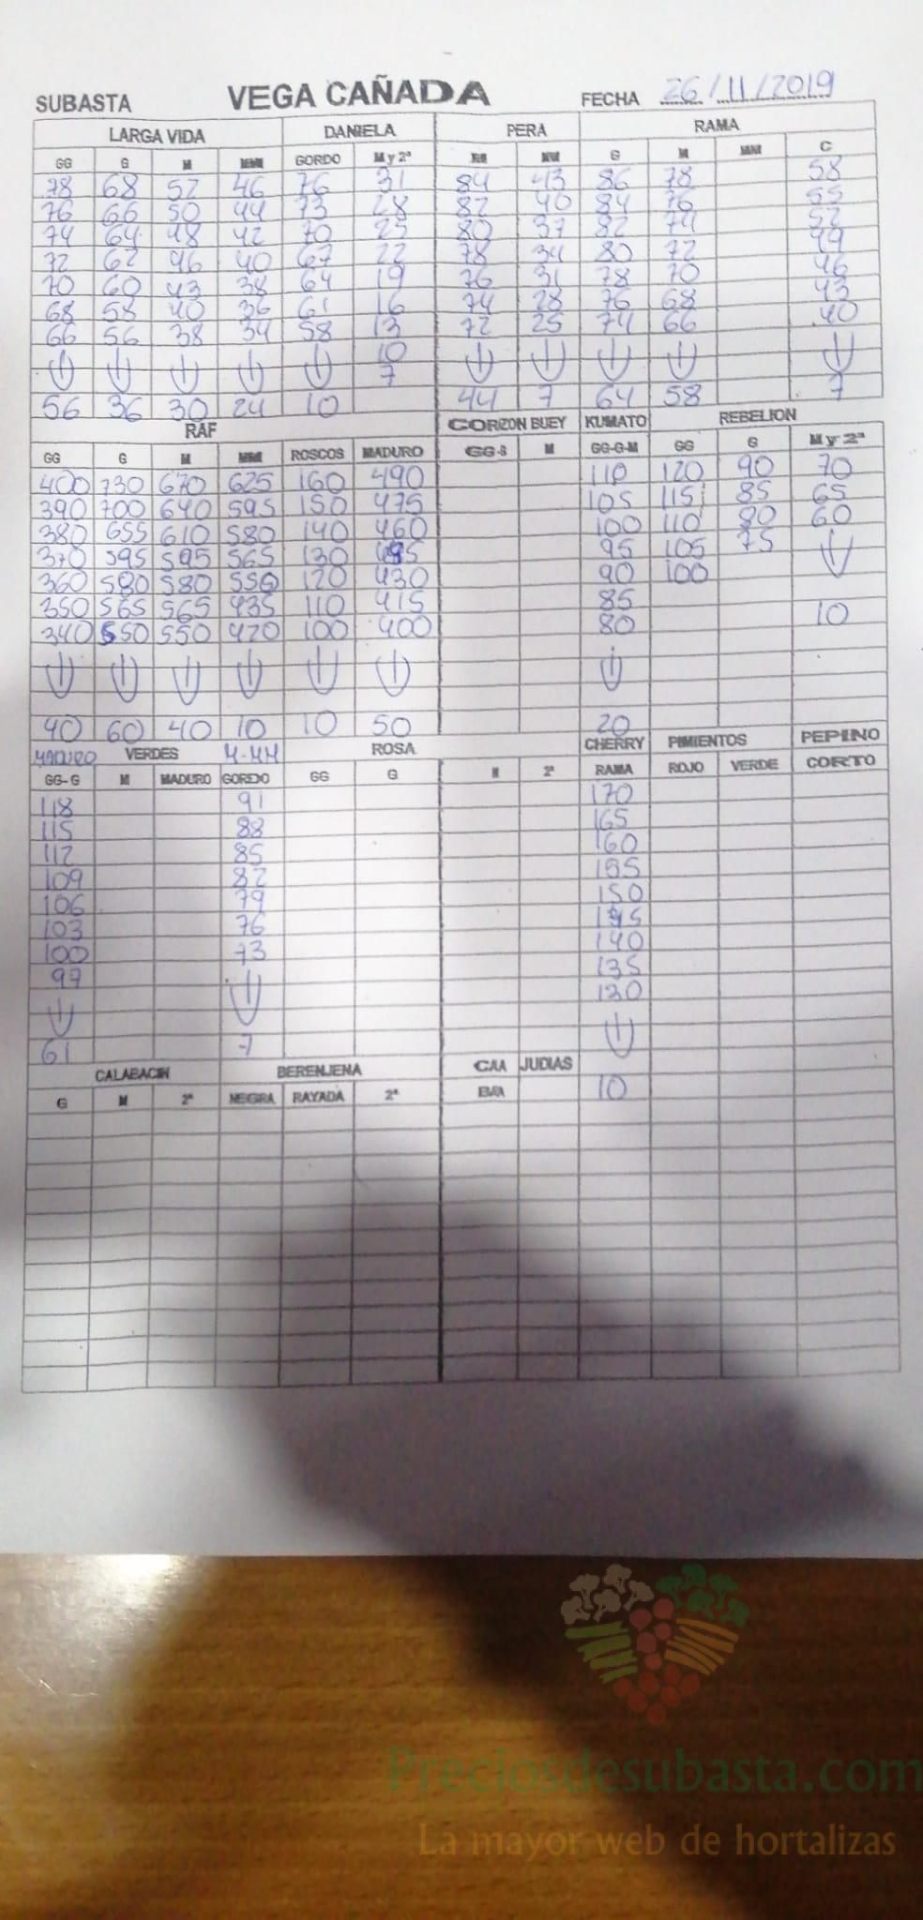 SUBASTA VEGA CAÑADA FECHA 26/11/2019
LARGA VIDA DANIELA PERA RAMA
GG G M MM GORDO M y 2ª MM G M MM C
78 68 52 46 76 31 84 43 86 78 58
76 66 50 44 73 28 82 40 84 76 55
74 64 48 42 70 25 80 37 82 74 52
72 62 46 40 67 22 78 34 80 72 49
70 60 43 38 64 19 76 31 78 70 46
68 58 40 36 61 16 74 28 76 68 43
66 56 38 34 58 13 72 25 74 66 40
10
7
56 36 30 24 10 44 7 64 58 7
RAF CORZON BUEY KUMATO REBELION
GG G M MM ROSCOS MADURO GG-G M GG-G-M GG G M y 2ª
400 730 670 625 160 490 110 120 90 70
390 700 640 595 150 475 105 115 85 65
380 655 610 580 140 460 100 110 80 60
370 595 595 565 130 95 105 75
360 580 580 550 120 430 90 100
350 565 565 435 110 415 85 10
340 550 550 420 100 400 80
40 60 40 10 10 50 20
MADURO VERDES M-MM ROSA CHERRY PIMIENTOS PEPINO
GG-G M MADURO GORDO GG G M 2ª RAMA ROJO VERDE CORTO
118 91 170
115 88 165
112 85 160
109 82 155
106 79 150
103 76 145
100 73 140
97 135
130
61 7
CALABACIN BERENJENA CAA JUDIAS
G M 2ª NEGRA RAYADA 2ª BAA 10
Preciosdesubasta.com
La mayor web de hortalizas